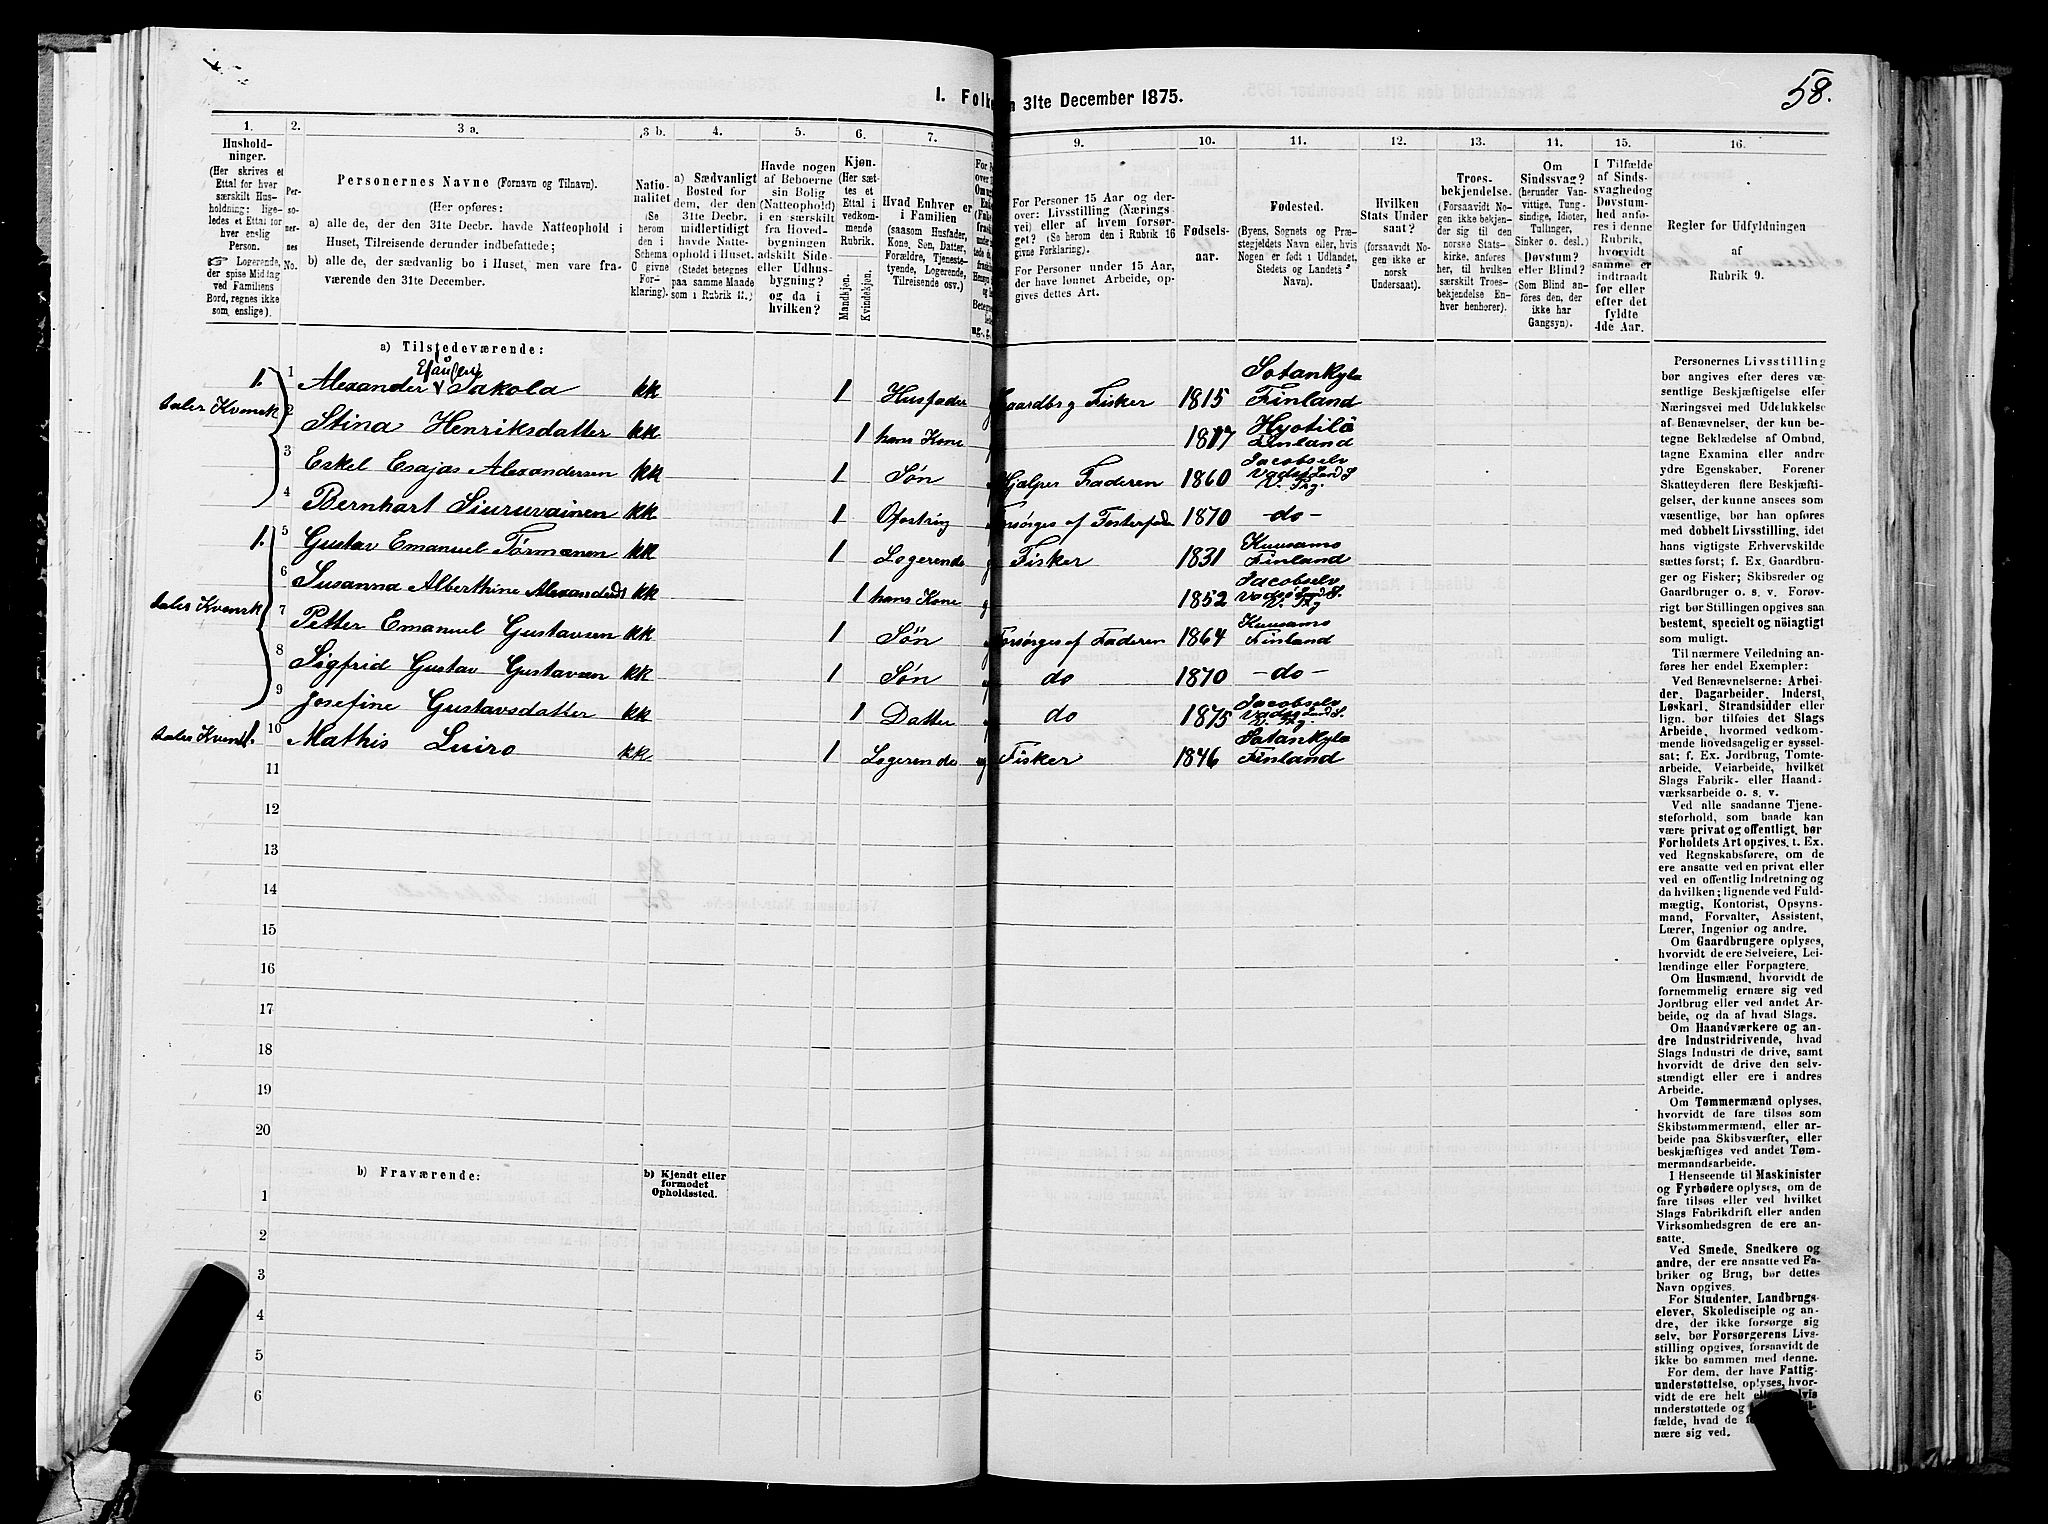 58.
I. Folke
n 31te December 1875.
1.
2.
3 a.
3 b.
4.
5.
6.
7.
9.
10.
11.
12.
13.
14.
15.
16.
Hushold-
ninger.
(Her skrives et
Ettal for hver
særskilt Hus-
holdning; lige-
ledes et Ettal for
hver enslig
Person.
☞ Logerende,
der spise Middag
ved Familiens
Bord, regnes ikke
som enslige).
Per-
so-
ner-
nes
No.
Personernes Navne (Fornavn og Tilnavn).
(Her opføres:
a) alle de, der den 31te Decbr. havde Natteophold i
Huset, Tilreisende derunder indbefattede;
b) alle de, der sædvanlig bo i Huset, men vare fra-
værende den 31te December.
Natio-
nalitet
(Se
herom
den i
Schema
C givne
For-
klaring).
a) Sædvanligt
Bosted for
dem, der den
31te Decbr.
midlertidigt
havde Natte-
ophold i Huset.
(Stedet betegnes
paa samme Maade
som i Rubrik 11.)
Havde nogen
af Beboerne
sin Bolig
(Natteophold)
i en særskilt
fra Hoved-
bygningen
adskilt Side-
eller Udhus-
bygning?
og da i
hvilken?
Kjøn.
(Her sæt-
tes et
Ettal i
vedkom-
mende
Rubrik.
Mandkjøn.
Kvindekjøn.
Hvad Enhver er
i Familien
(saasom Husfader,
Kone, Søn, Datter,
Forældre, Tjeneste-
tyende, Logerende,
Tilreisende osv.)
For Personer 15 Aar og der-
over: Livsstilling (Nærings-
vei) eller af hvem forsør-
get? (Se herom i Rubrik 16
givne Forklaring).
For Personer under 15 Aar,
der have lønnet Arbeide, op-
gives dettes Art.
Fødsels-
aar.
Fødested.
(Byens, Sognets og Præ-
stegjeldets Navn eller, hvis
Nogen er født i Udlandet,
Stedets og Landets
Navn).
Hvilken
Stats Under-
saat?
(forsaavidt No-
gen ikke er
norsk
Undersaat).
Troes-
bekjendelse.
(Forsaavidt No-
gen ikke bekjen-
der sig til den
norske Stats-
kirke, anføres
her, til hvilken
særskilt Troes-
bekjendelse En-
hver henhører).
Om
Sindssvag?
(herunder Van-
vittige, Tung-
sindige, Idioter,
Tullinger,
Sinker o. desl.)
Døvstum?
eller Blind?
(Som Blind an-
føres den, der
ikke har
Gangsyn).
I Tilfælde
af Sinds-
svaghed og
Døvstum-
hed anfø-
res i denne
Rubrik,
hvorvidt
samme er
indtraadt
før eller
efter det
fyldte
4de Aar.
Regler for Udfyldningen
af
Rubrik 9.
a) Tilstedeværende:
1. 1 Alexander Sakola kk 1 Husfader Gaardbrg Fisker 1815 Sotankyla Finland
taler Kvensk
2 Stina Henriksdatter kk 1 hans Kone 1817 Hyotilö Finland
3 Eskel Esajas Alexandersen kk 1 Søn Hjælper Faderen 1860 Jacobselv Vadsø Land S. V. Prg.
4 Bernhart Siuruvainen kk 1 Opfostring Forsørges af Fosterfader 1870 - do -
1. 5 Gustav Emanuel Törmænen kk 1 Logerende Fisker 1831 Kuusamo Finland
6 Susanna Alberthine Alexandersd kk 1 hans Kone 1852 Jacobselv Vadsø Land S. V. Prg
taler Kvensk
7 Petter Emanuel Gustavsen kk 1 Søn Forsørges af Faderen 1864 Kuusamo Finland
8 Sigfrid Gustav Gustavsen kk 1 Søn do 1870 - do -
9 Josefine Gustavsdatter kk 1 Datter do 1875 Jacobselv Vadsø Land S. V. Prg
taler Kvensk 1. 10 Mathis Luiro kk 1 Logerende Fisker 1846 Sotankyla Finland
11
12
13
14
15
16
17
18
19
20
b) Fraværende:
b) Kjendt eller
formodet
Opholdssted.
1
2
3
4
5
6
Personernes Livsstilling
bør angives efter deres væ-
sentlige Beskjæftigelse eller
Næringsvei med Udelukkelse
af Benævnelser, der kun be-
tegne Beklædelse af Ombud,
tagne Examina eller andre
ydre Egenskaber. Forener
Skatteyderen flere Beskjæfti-
gelser, der kunne ansees som
væsentlige, bør han opføres
med dobbelt Livsstilling, idet
hans vigtigste Erhvervskilde
sættes først; f. Ex. Gaardbru-
ger og Fisker; Skibsreder og
Gaardbruger o. s. v. Forøv-
rigt bør Stillingen opgives saa
bestemt, specielt og nöiagtigt
som muligt.
Til nærmere Veiledning an-
føres her endel Exempler:
Ved Benævnelserne: Arbei-
der, Dagarbeider, Inderst,
Løskarl, Strandsidder eller
lign. bør tilføies det Slags
Arbeide, hvormed vedkom-
mende hovedsagelig er syssel-
sat; f. Ex. Jordbrug, Tomte-
arbeide, Veiarbeide, hvilket
Slags Fabrik- eller Haand-
værksarbeide o. s. v.
Ved alle saadanne Tjene-
steforhold, som baade kan
være privat og offentligt, bør
Forholdets Art opgives, t. Ex.
ved Regnskabsførere, om de
ere ansatte ved en privat eller
ved en offentlig Indretning og
da hvilken; lignende ved Fuld-
mægtig, Kontorist, Opsyns-
mand, Forvalter, Assistent,
Lærer, Ingeniør og andre.
Om Gaardbrugere oplyses,
hvorvidt de ere Selveiere, Lei-
lændinge eller Forpagtere.
Om Husmænd, hvorvidt de
fornemmelig ernære sig ved
Jordbrug eller ved andet Ar-
beide, og da af hvad Slags.
Om Haandværkere og an-
dre Industridrivende, hvad
Slags Industri de drive, samt
hvorvidt de drive den selv-
stændigt eller ere i andres
Arbeide.
Om Tømmermænd oplyses,
hvorvidt de fare tilsøs som
Skibstømmermænd, eller ar-
beide paa Skibsværfter, eller
beskjæftiges ved andet Tøm-
mermandsarbeide.
I Henseende til Maskinister
og Fyrbødere oplyses, om de
fare tilsøs eller ved hvilket
Slags Fabrikdrift eller anden
Virksomhedsgren de ere an-
satte.
Ved Smede, Snedkere og
andre, der ere ansatte ved Fa-
briker og Brug, bør dettes
Navn opgives.
For Studenter, Landbrugs-
elever, Skoledisciple og an-
dre, der ikke forsørge sig
selv, bør Forsørgerens Livs-
stilling opgives, forsaavidt de
ikke bo sammen med denne.
For dem, der have Fattig-
understøttelse, oplyses, hvor-
vidt de ere helt
understøttede og
fælde, hvad de
nære sig ved.